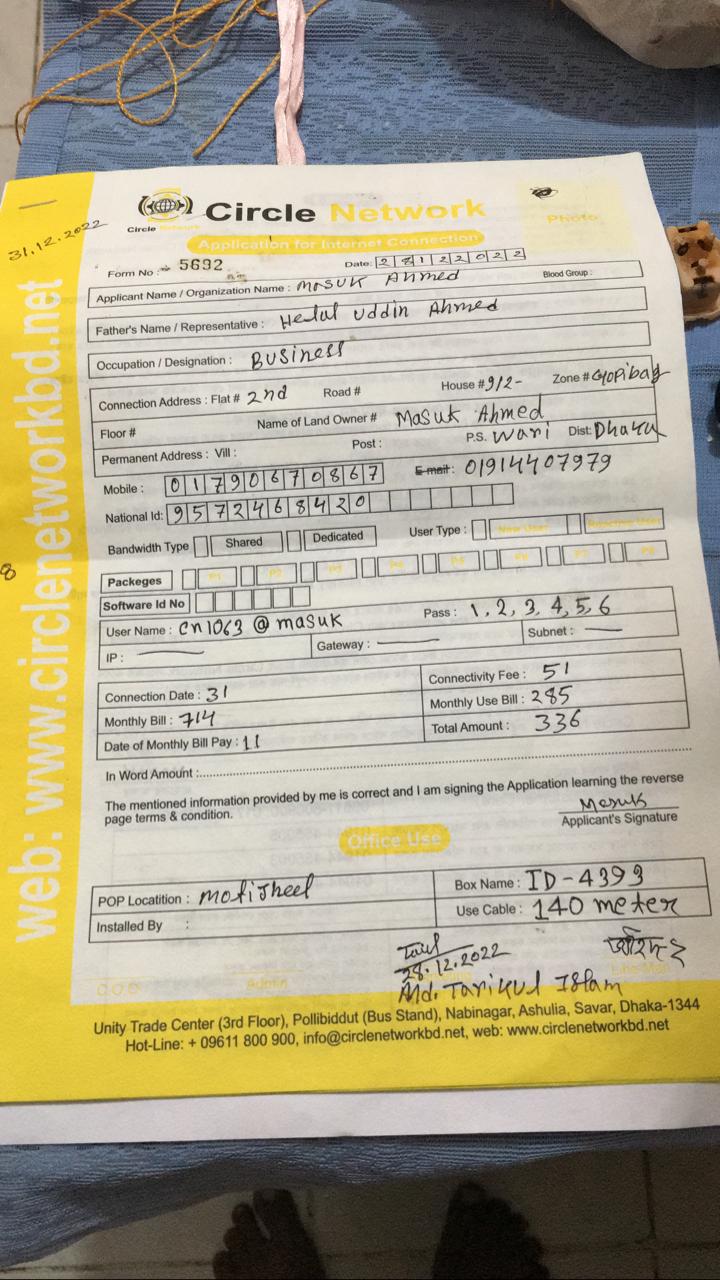 31.12.2022
Circle Network
Circle Network
Photo
Application for Internet Connection
Form No : 5692 Date: 28122022
Applicant Name / Organization Name : Masuk Ahmed Blood Group :
Father's Name / Representative : Helal Uddin Ahmed
Occupation / Designation : Business
Connection Address : Flat # 2nd Road # House # 9/2- Zone # Gopibag
Floor # Name of Land Owner # Masuk Ahmed
Permanent Address : Vill : Post : P.S. Wari Dist: Dhaka
Mobile : 01790670867 E-mail : 01914407979
National Id: 9572468420
Bandwidth Type Shared Dedicated User Type : New User Reactive User
Packeges P1 P2 P3 P4 P5 P6 P7 P8
Software Id No
User Name : cn1063@masuk Pass : 1,2,3,4,5,6
IP : Gateway : Subnet :
Connection Date : 31 Connectivity Fee : 51
Monthly Bill : 714 Monthly Use Bill : 285
Date of Monthly Bill Pay : 11 Total Amount : 336
In Word Amount :
The mentioned information provided by me is correct and I am signing the Application learning the reverse
page terms & condition.
Masuk
Applicant's Signature
Office Use
POP Locatition : Motijheel Box Name : ID-4393
Installed By : Use Cable : 140 meter
28.12.2022
Admin
Md. Tarikul Islam
Unity Trade Center (3rd Floor), Pollibiddut (Bus Stand), Nabinagar, Ashulia, Savar, Dhaka-1344
Hot-Line: + 09611 800 900, info@circlenetworkbd.net, web: www.circlenetworkbd.net
web: www.circlenetworkbd.net
8